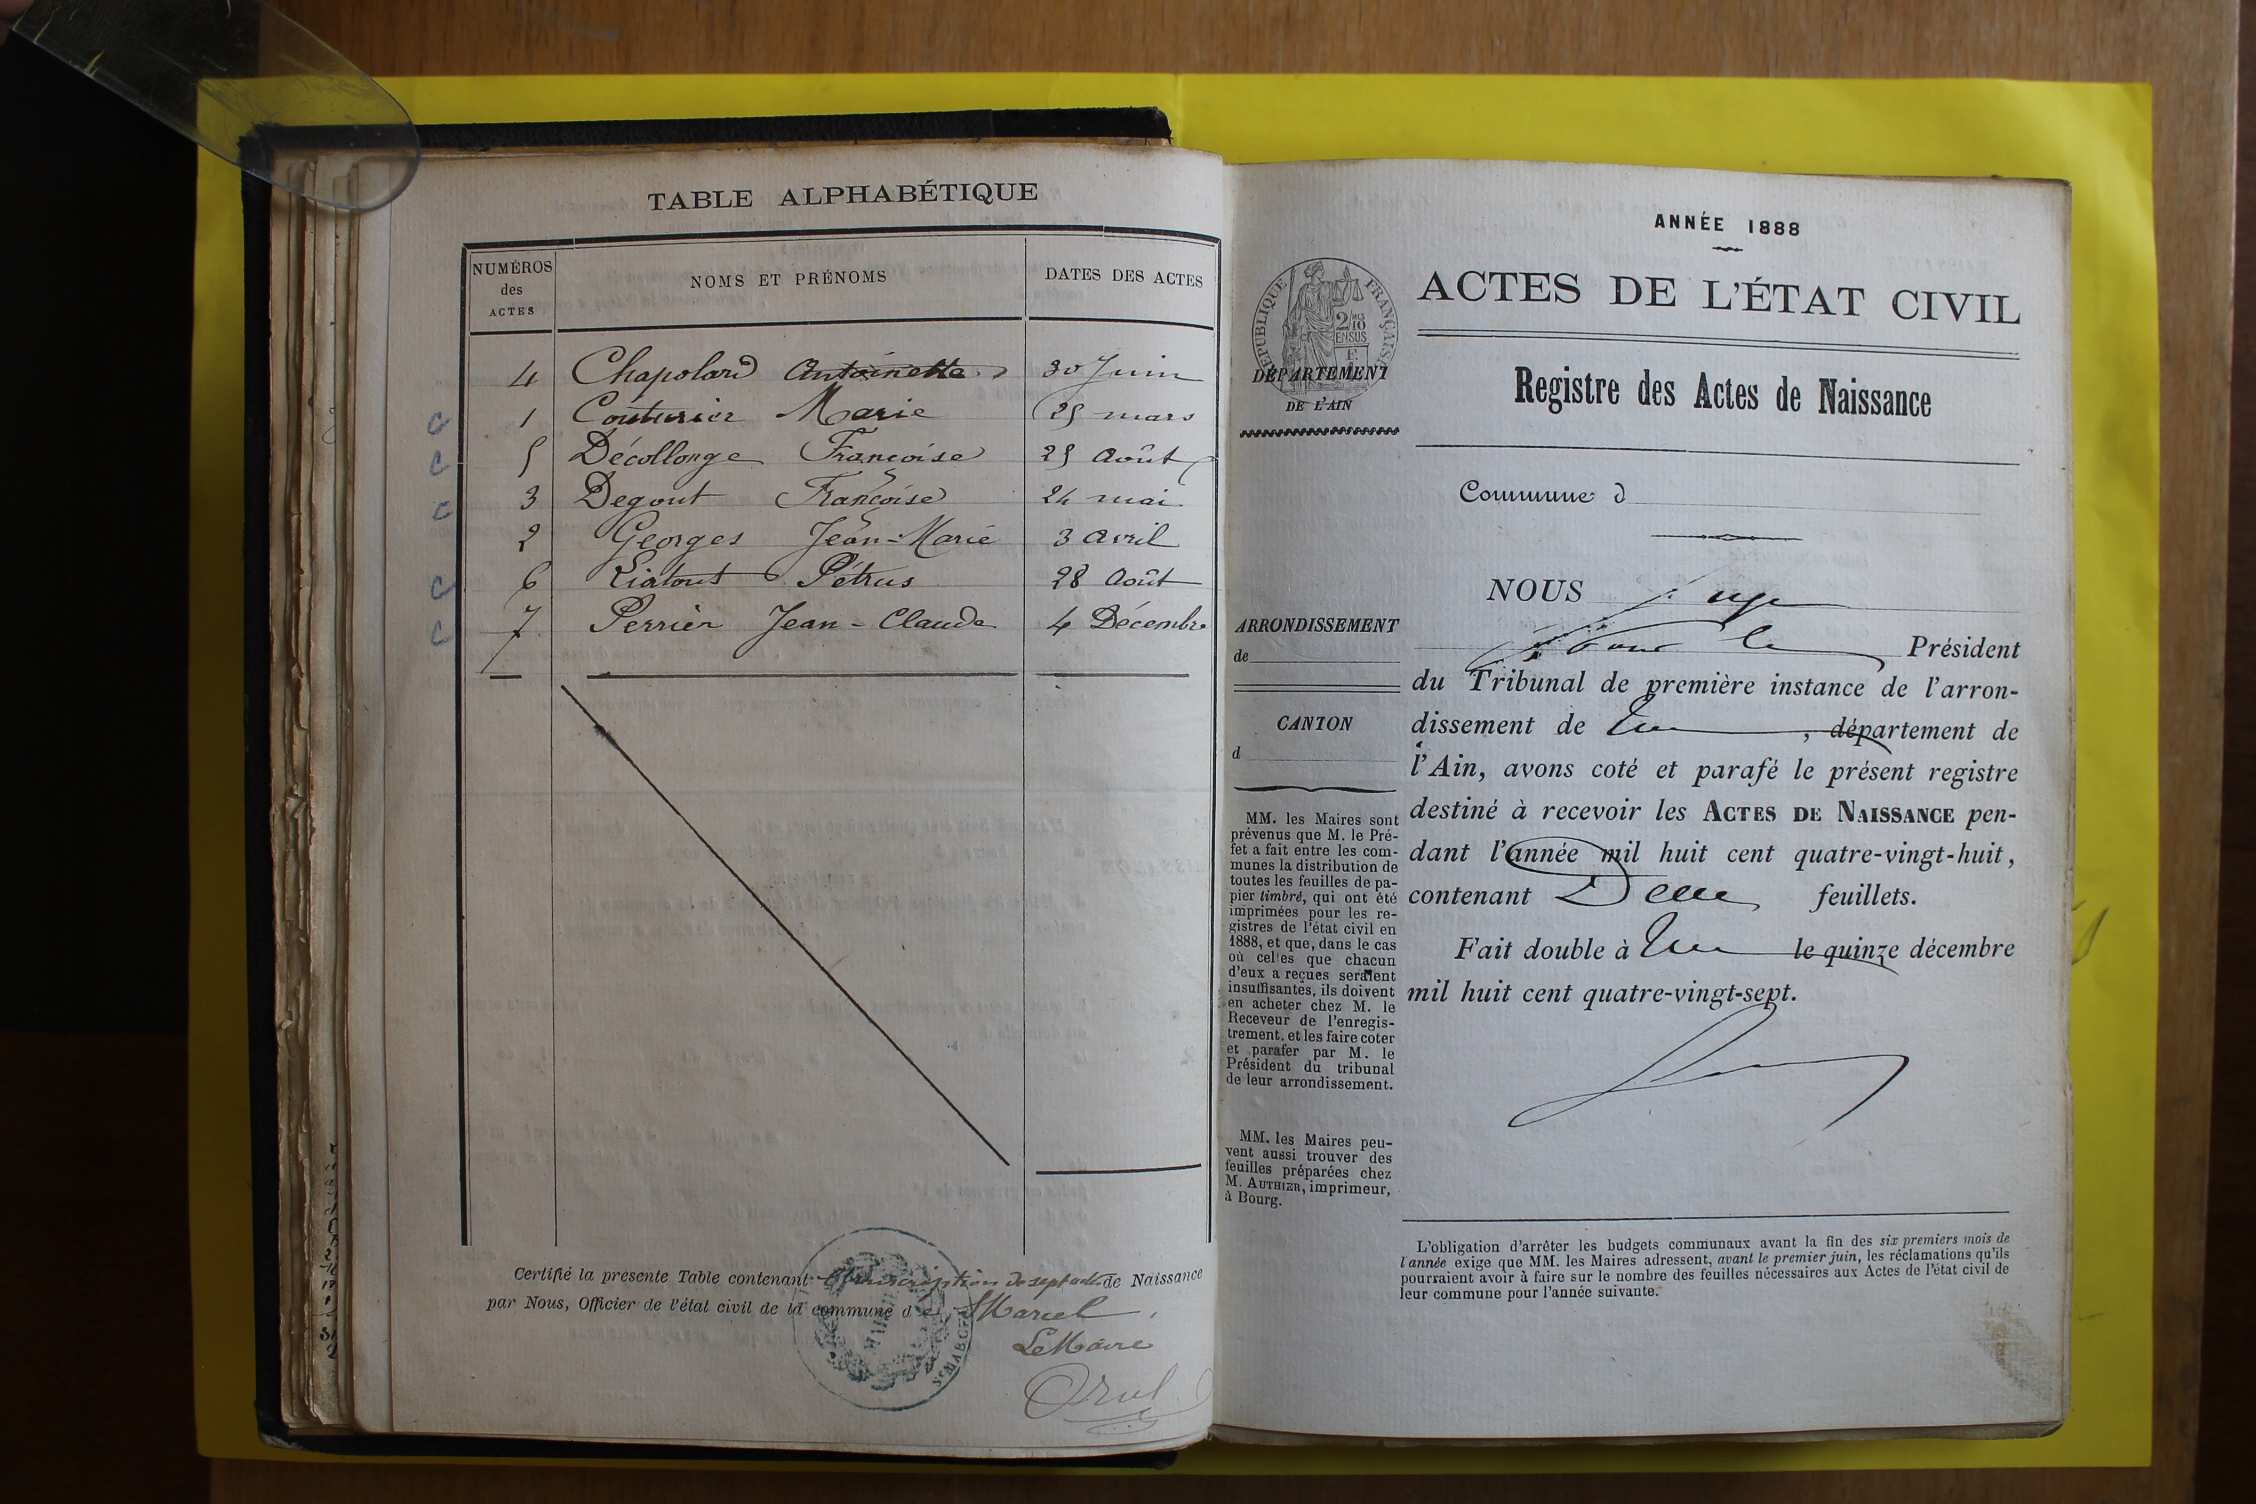 TABLE ALPHABÉTIQUE
NUMÉROS des ACTES NOMS ET PRÉNOMS DATES DES ACTES
4 Chapolard Antoinette 30 Juin
c 1 Couturier Marie 25 mars
c 5 Décollonge Françoise 25 Août
c 3 Degout Françoise 24 mai
2 Georges Jean-Marie 3 Avril
c 6 Liatout Pétrus 28 Août
c 7 Perrier Jean-Claude 4 Décembre
Certifié la présente Table contenant l'inscription de sept actes de Naissance
par Nous, Officier de l'état civil de la commune d St Marcel
Le Maire
MAIRIE
St MARCEL
ANNÉE 1888
ACTES DE L'ÉTAT CIVIL
RÉPUBLIQUE FRANÇAISE
2/10 EN SUS
DÉPARTEMENT
DE L'AIN
Registre des Actes de Naissance
Commune d
NOUS Juge
Président
du Tribunal de première instance de l'arron-
dissement de , département de
l'Ain, avons coté et parafé le présent registre
destiné à recevoir les ACTES DE NAISSANCE pen-
dant l'année mil huit cent quatre-vingt-huit,
contenant Deux feuillets.
Fait double à le quinze décembre
mil huit cent quatre-vingt-sept.
ARRONDISSEMENT
de
CANTON
d
MM. les Maires sont
prévenus que M. le Pré-
fet a fait entre les com-
munes la distribution de
toutes les feuilles de pa-
pier timbré, qui ont été
imprimées pour les re-
gistres de l'état civil en
1888, et que, dans le cas
où celles que chacun
d'eux a reçues seraient
insuffisantes, ils doivent
en acheter chez M. le
Receveur de l'enregis-
trement, et les faire coter
et parafer par M. le
Président du tribunal
de leur arrondissement.
MM. les Maires peu-
vent aussi trouver des
feuilles préparées chez
M. AUTHIER, imprimeur,
à Bourg.
L'obligation d'arrêter les budgets communaux avant la fin des six premiers mois de
l'année exige que MM. les Maires adressent, avant le premier juin, les réclamations qu'ils
pourraient avoir à faire sur le nombre des feuilles nécessaires aux Actes de l'état civil de
leur commune pour l'année suivante.